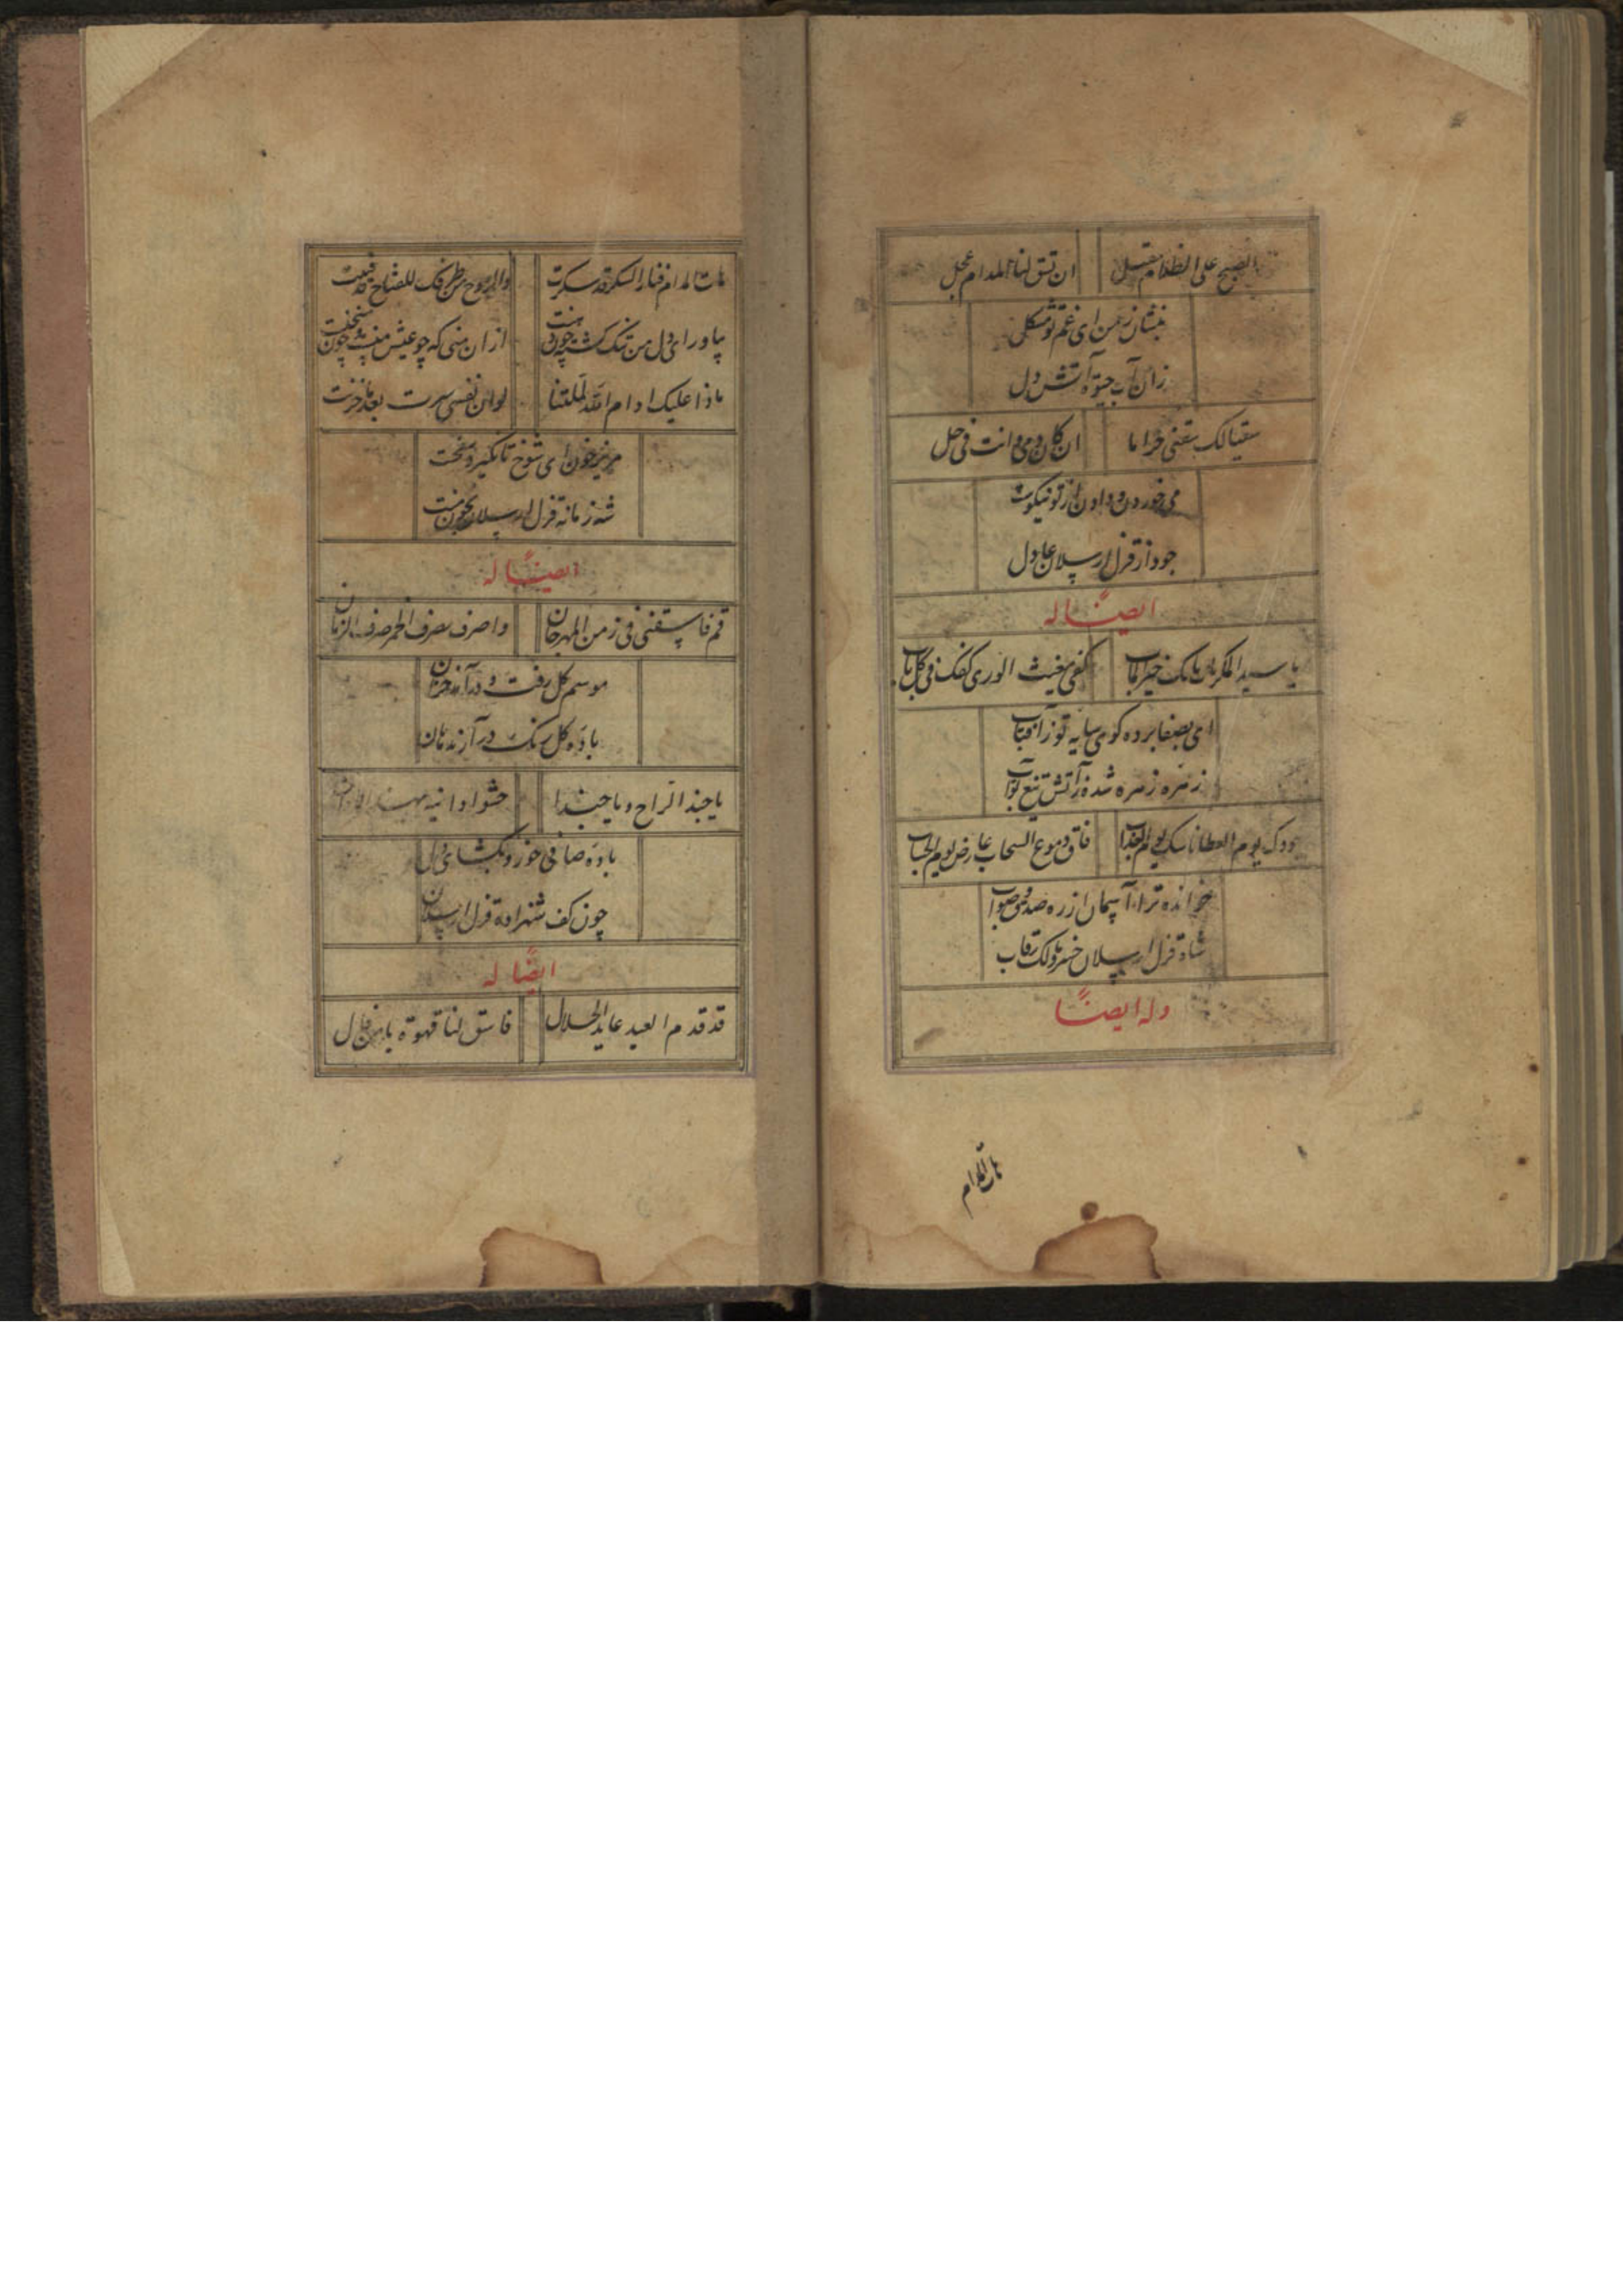 الصبح علی الظلام مقبل ان تسق لنا المدام عجل
بنشان ز من ای غم تو مشکل
زان آب حیوة آتش دل
سقیا لک سقنی حراما ان کان دمی و انت فی حل
می خوردن و دادن از تو نیکوست
جود از قزل ارسلان عادل
ایضًا له
یا سید المکرمات بابک خیر المآب کفی مغیث الوری کفک فی کل باب
ای بصفا برده کوی سایه تو ز آفتاب
زهره زهره شده ز آتش تیغ تو آب
جودک یوم العطا باسک یوم العذاب فاق دموع السحاب عارض یوم
خوانده ترا آسمان از ره صدق و صواب
شاه قزل ارسلان خسرو مالک رقاب
وله ایضًا
هات المدام
هات المدام فنار السکر قد سکرت والروح من طرفک
بیاور ای دل من تنک شسته از ان منی که چو عیش منست
ماذا علیک ادام الله لو ان نفسی سرت بعد ما حزنت
مریز خون ای شوخ تا نکیرد سخت
شه زمانه قزل ارسلان بخون منت
ایضًا له
قم فاسقنی فی زمن المهرجان واصرف بصرف الخمر صرف الزمان
موسم کل رفت و درآمد خزان
باده کل رنک درآر ندمان
یا حبذا الراح و یا حبذا حشو اوانیه
باده صافی خور و بکشای دل
چون کف شهزاده قزل ارسلان
ایضًا له
قد قدم العید عاید الحلال فاسق لنا قهوة